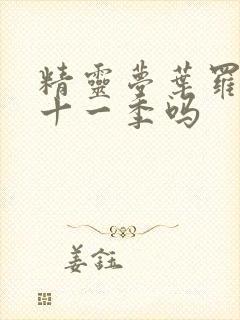 精靈夢葉羅
十一季吗
姜鈺